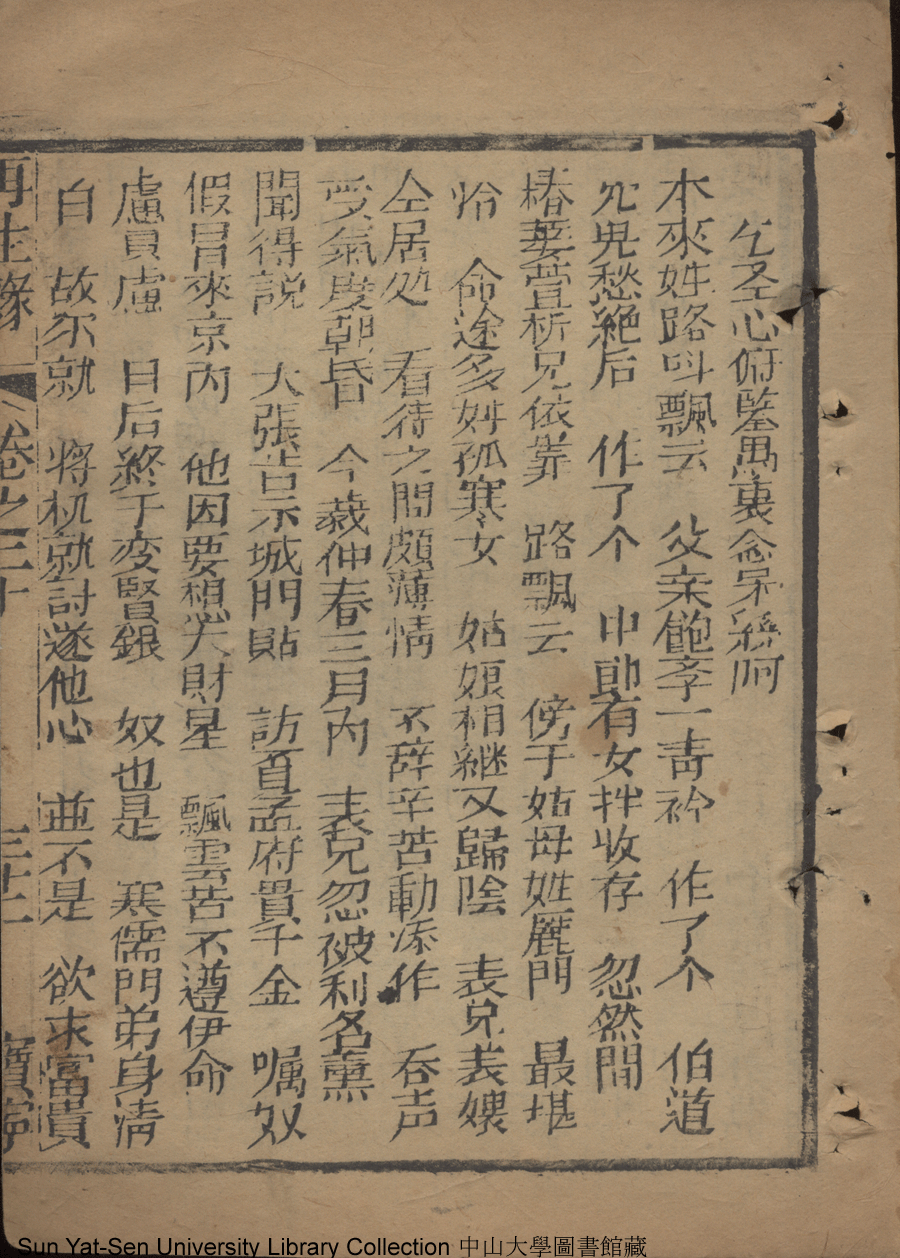 乞圣心俯鍳愚衷念呆稺阿
本來姓路叫飄云 父亲飽李一青衿 作了个 伯道
兄愁絶后 作了个 中郎有女拌收存 忽然間
椿萎萱析兄依靠 路飄云 傍于姑母姓雇門 最堪
怜 命途多舛孤寒女 姑娘相継又歸陰 表兄表嫂
仝居処 看待之間頗薄情 不辞辛苦動添作 吞声
受氣度朝昏 今歲仲春三月内 表兄忽被利名薰
聞得説 大張告示城門貼 訪頁孟府貴千金 嘱奴
假冒來京内 他因要想大財星 飄雲苦不遵伊命
慮頁慮 日后終于变賢銀 奴也是 寒儒門弟身清
白 故尔就 將机就討遂他心 並不是 欲求富貴
再生縁 卷之三十 三十二 寳寧
Sun Yat-Sen University Library Collection 中山大學圖書館藏